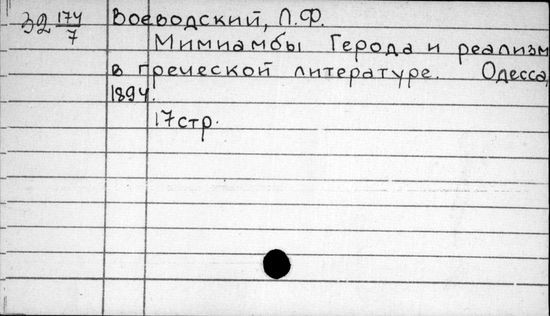 32 174/7 Воеводский, Л.Ф.
Мимиамбы Герода и реализм
в греческой литературе. Одесса,
1894.
17 стр.